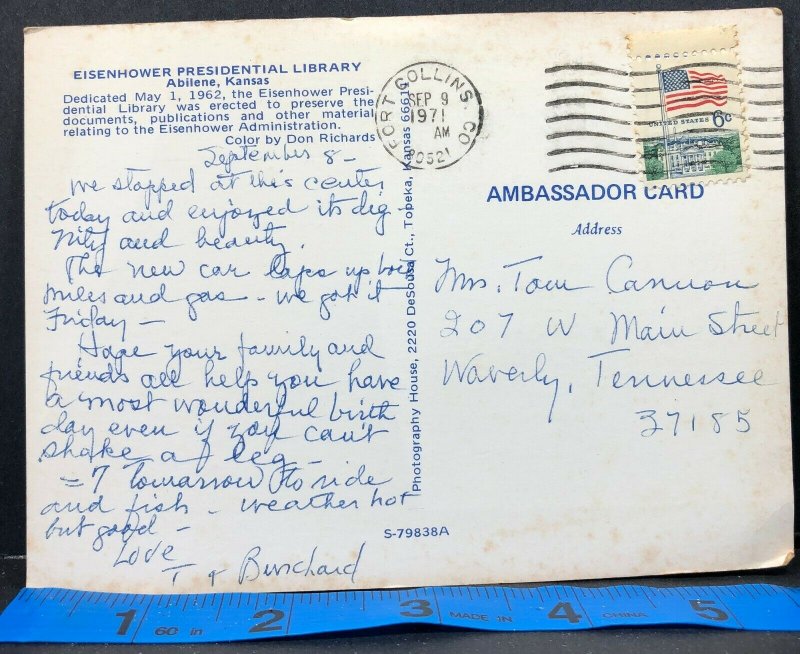 EISENHOWER PRESIDENTIAL LIBRARY
Abilene, Kansas
Dedicated May 1, 1962, the Eisenhower Presi-
dential Library was erected to preserve the
documents, publications and other material
relating to the Eisenhower Administration.
Color by Don Richards
September 8-
We stopped at this center
today and enjoyed its dig-
nity and beauty.
The new car laps up both
miles and gas - we got it
Friday -
Hope your family and
friends all help you have
a most wonderful birth
day even if you can't
shake a leg -
tomorrow to ride
and fish - weather hot
but good -
Love
T + Burchard
Photography House, 2220 DeSousa Ct., Topeka, Kansas 66611
S-79838A
FORT COLLINS, CO
SEP 9
1971
AM
80521
UNITED STATES 6c
AMBASSADOR CARD
Address
Mrs. Tom Cannon
207 W Main Street
Waverly, Tennessee
37185
1 60 in 2 3 MADE IN 4 CHINA 5